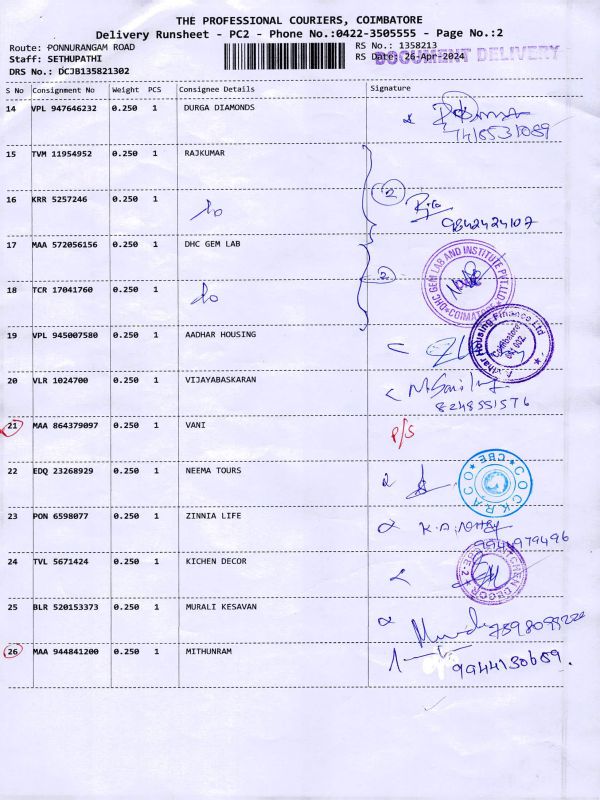 THE PROFESSIONAL COURIERS, COIMBATORE
Delivery Runsheet - PC2 - Phone No.:0422-3505555 - Page No.:2
Route: PONNURANGAM ROAD RS No.: 1358213
Staff: SETHUPATHI RS Date: 26-Apr-2024 DOCUMENT DELIVERY
DRS No.: DCJB135821302
S No Consignment No Weight PCS Consignee Details Signature
14 VPL 947646232 0.250 1 DURGA DIAMONDS
15 TVM 11954952 0.250 1 RAJKUMAR
16 KRR 5257246 0.250 1 2
9842424107
17 MAA 572056156 0.250 1 DHC GEM LAB
DHC GEM LAB AND INSTITUTE PVT.LTD
18 TCR 17041760 0.250 1 2
19 VPL 945007580 0.250 1 AADHAR HOUSING
Aadhar Housing Finance Ltd
Coimbatore
20 VLR 1024700 0.250 1 VIJAYABASKARAN
8248551576
21 MAA 864379097 0.250 1 VANI P/S
22 EDQ 23268929 0.250 1 NEEMA TOURS
COCKRACO CBE
23 PON 6598077 0.250 1 ZINNIA LIFE
9944979496
24 TVL 5671424 0.250 1 KICHEN DECOR
25 BLR 520153373 0.250 1 MURALI KESAVAN
26 MAA 944841200 0.250 1 MITHUNRAM
9944130689.